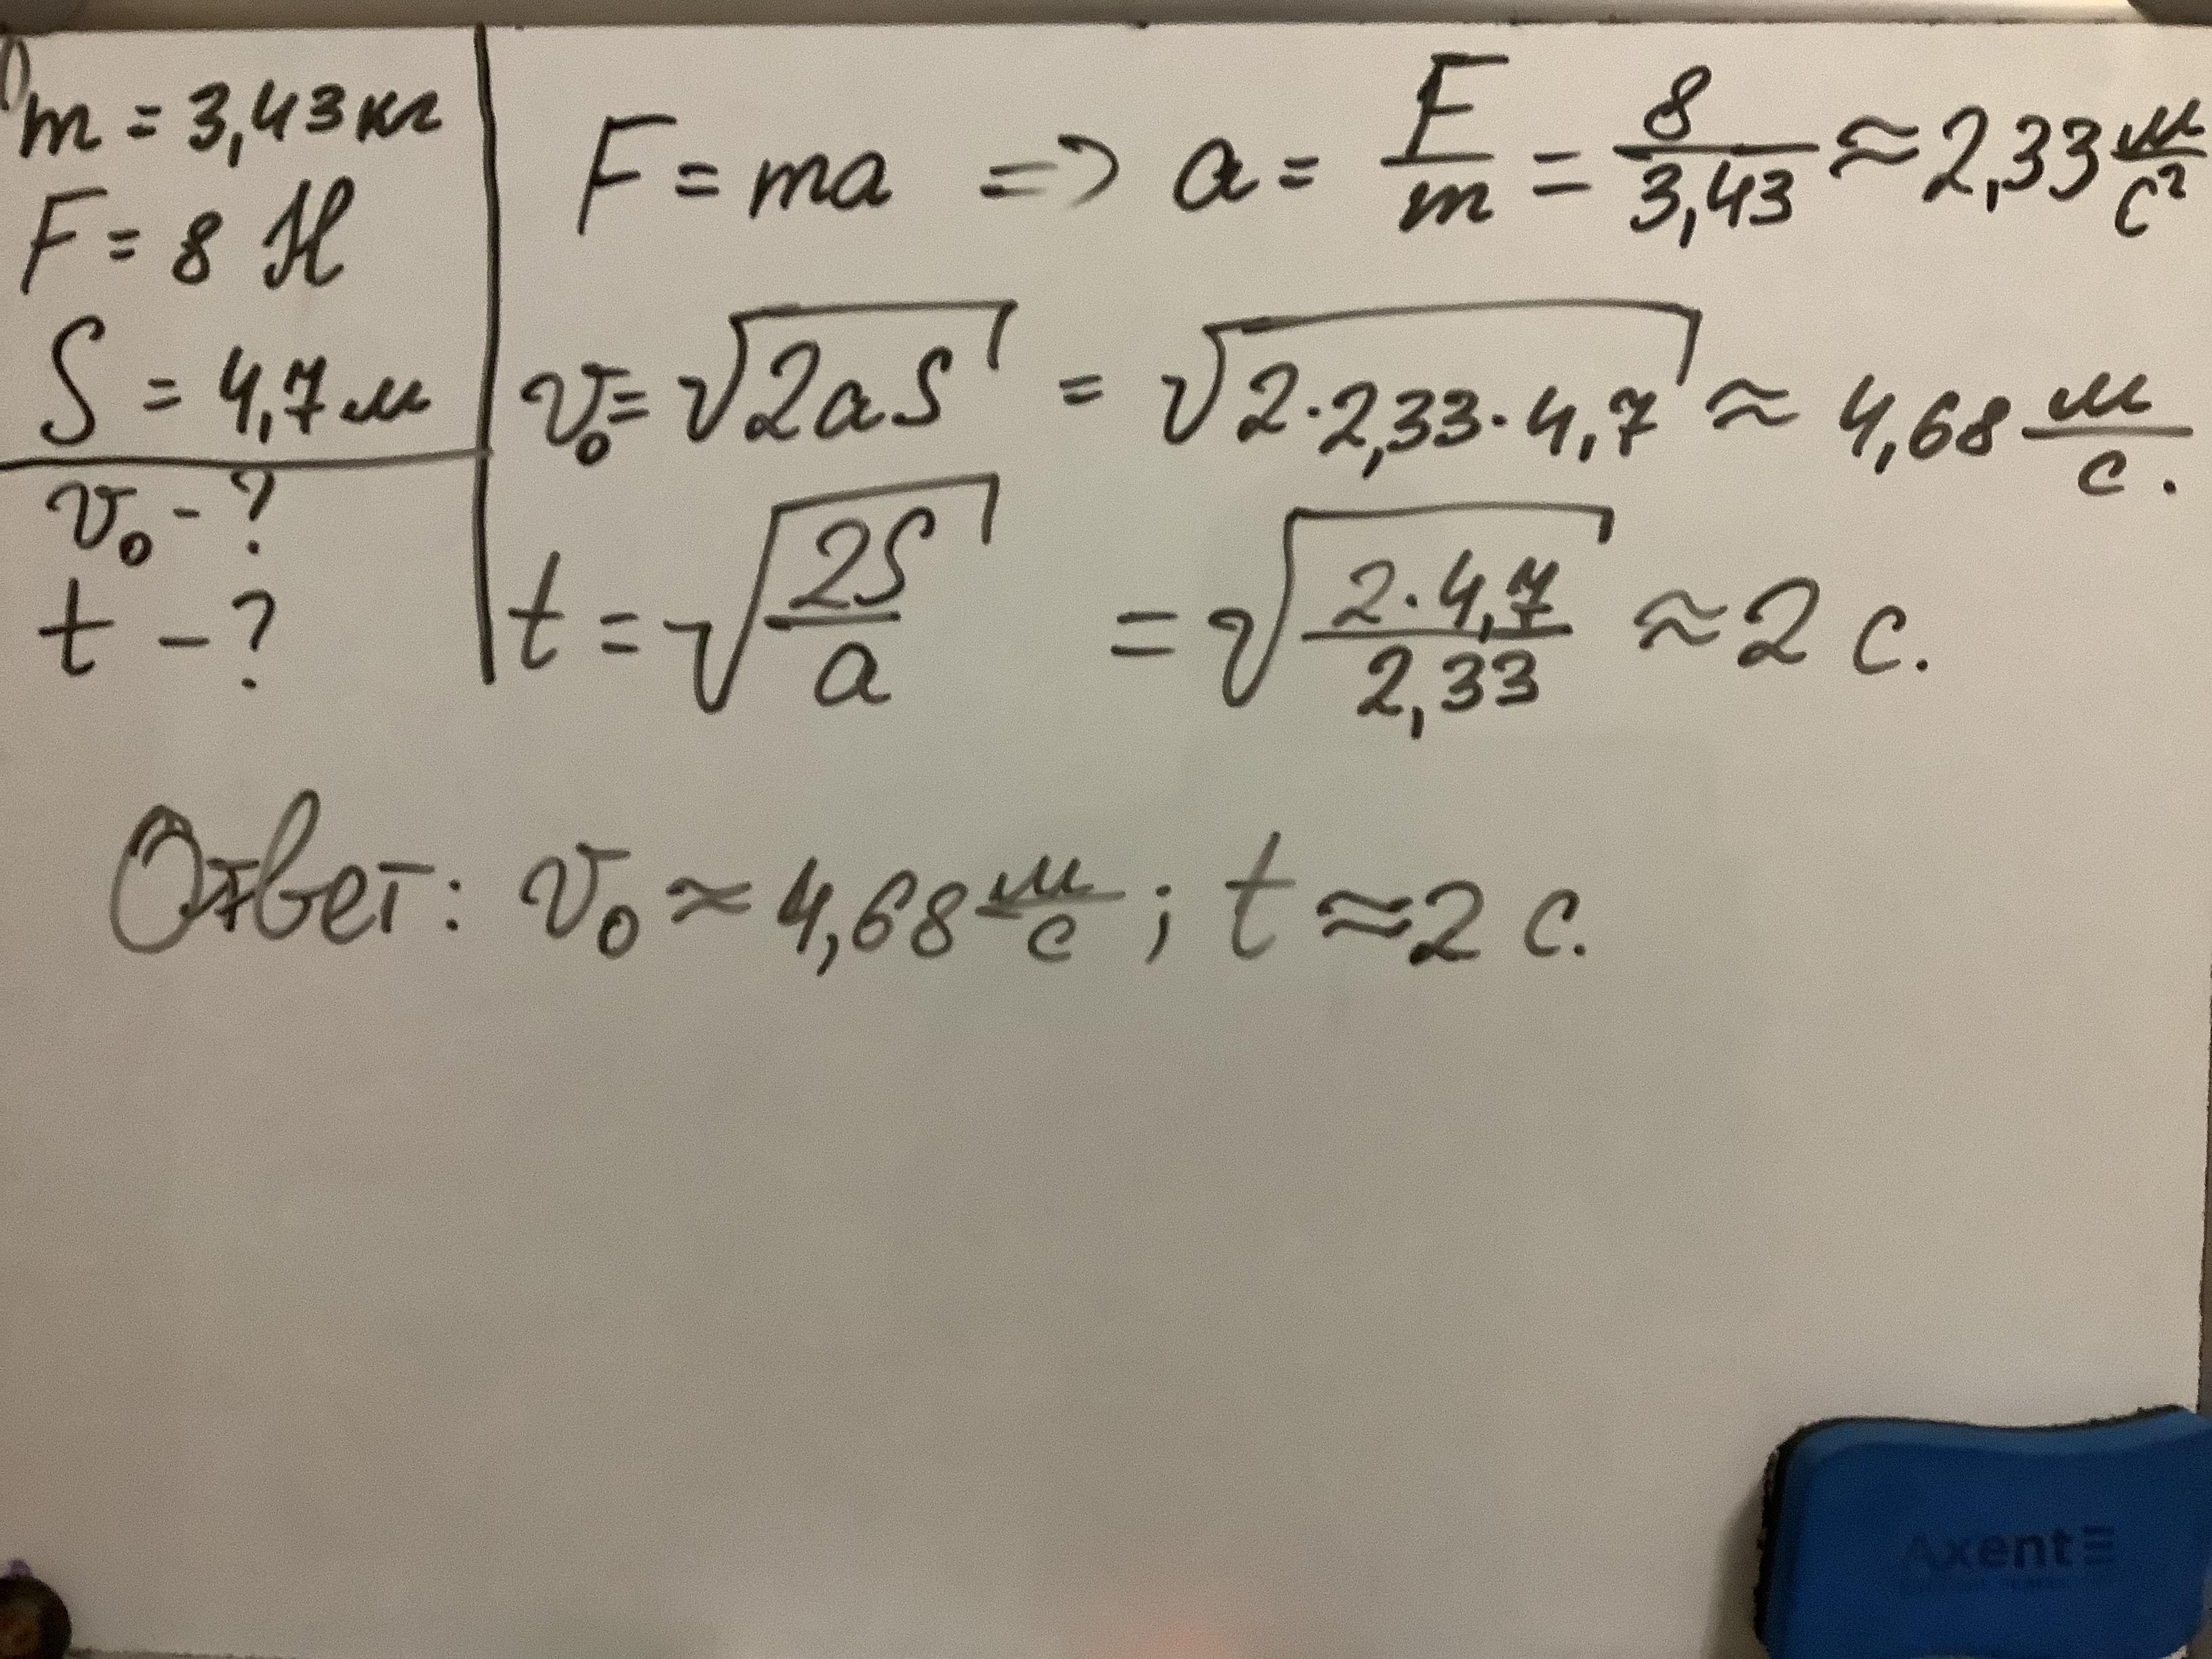 1)
m = 3,43 кг
F = 8 Н
S = 4,7 м
v₀ - ?
t - ?
F = ma => a = F/m = 8/3,43 ≈ 2,33 м/с²
v₀ = √(2aS) = √(2·2,33·4,7) ≈ 4,68 м/с.
t = √(2S/a) = √(2·4,7/2,33) ≈ 2 с.
Ответ: v₀ ≈ 4,68 м/с; t ≈ 2 с.
Axent